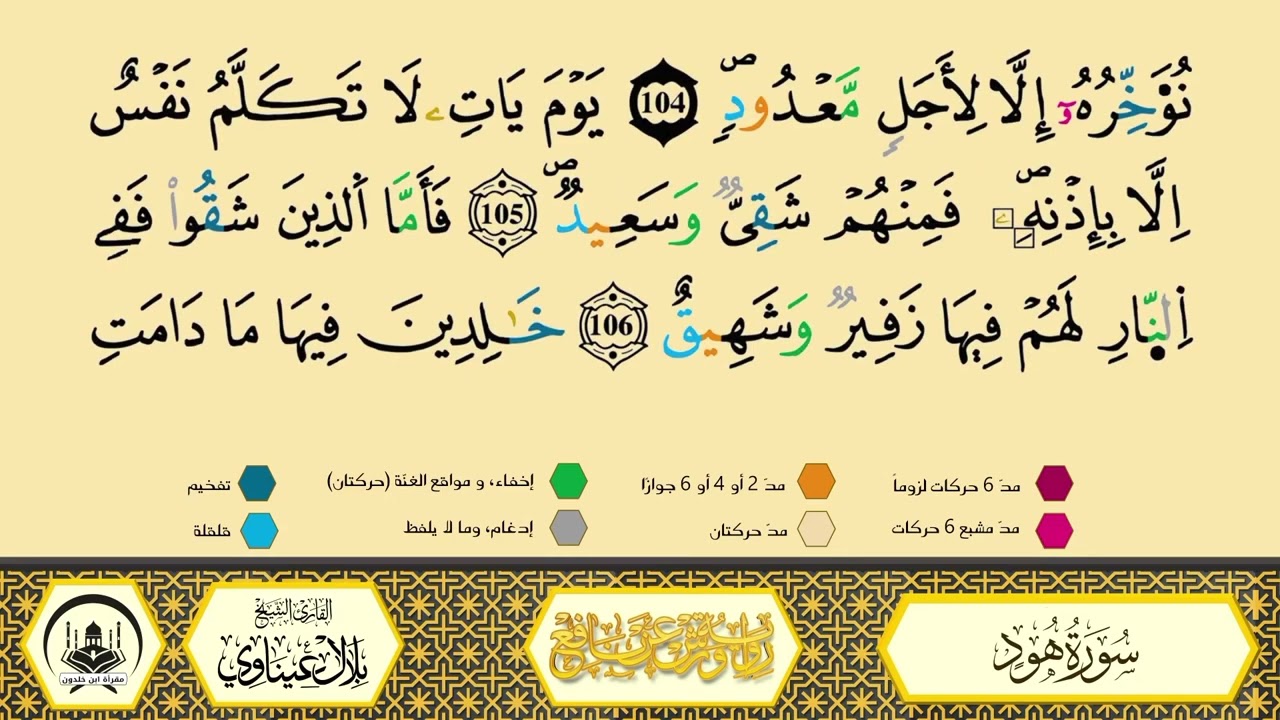 نُوَ۬خِّرُهُۥٓ إِلَّا لِأَجَلٖ مَّعْدُودٖۖ 104 يَوْمَ يَاتِۦ لَا تَكَلَّمُ نَفْسٌ
اِلَّا بِإِذْنِهِۦۖ فَمِنْهُمْ شَقِيّٞ وَسَعِيدٞۖ 105 فَأَمَّا اَ۬لذِينَ شَقُواْ فَفِے
اِ۬لنّ۪ارِ لَهُمْ فِيهَا زَفِيرٞ وَشَهِيقٌ 106 خَٰلِدِينَ فِيهَا مَا دَامَتِ
مدّ 6 حركات لزوماً مدّ 2 أو 4 أو 6 جوازًا إخفاء، و مواقع الغنّة (حركتان) تفخيم
مدّ مشبع 6 حركات مدّ حركتان إدغام، وما لا يلفظ قلقلة
سُورَةُ هُودٍ
رواية ورش عن نافع
القارئ الشيخ
بلال عيناوي
مقرأة ابن خلدون